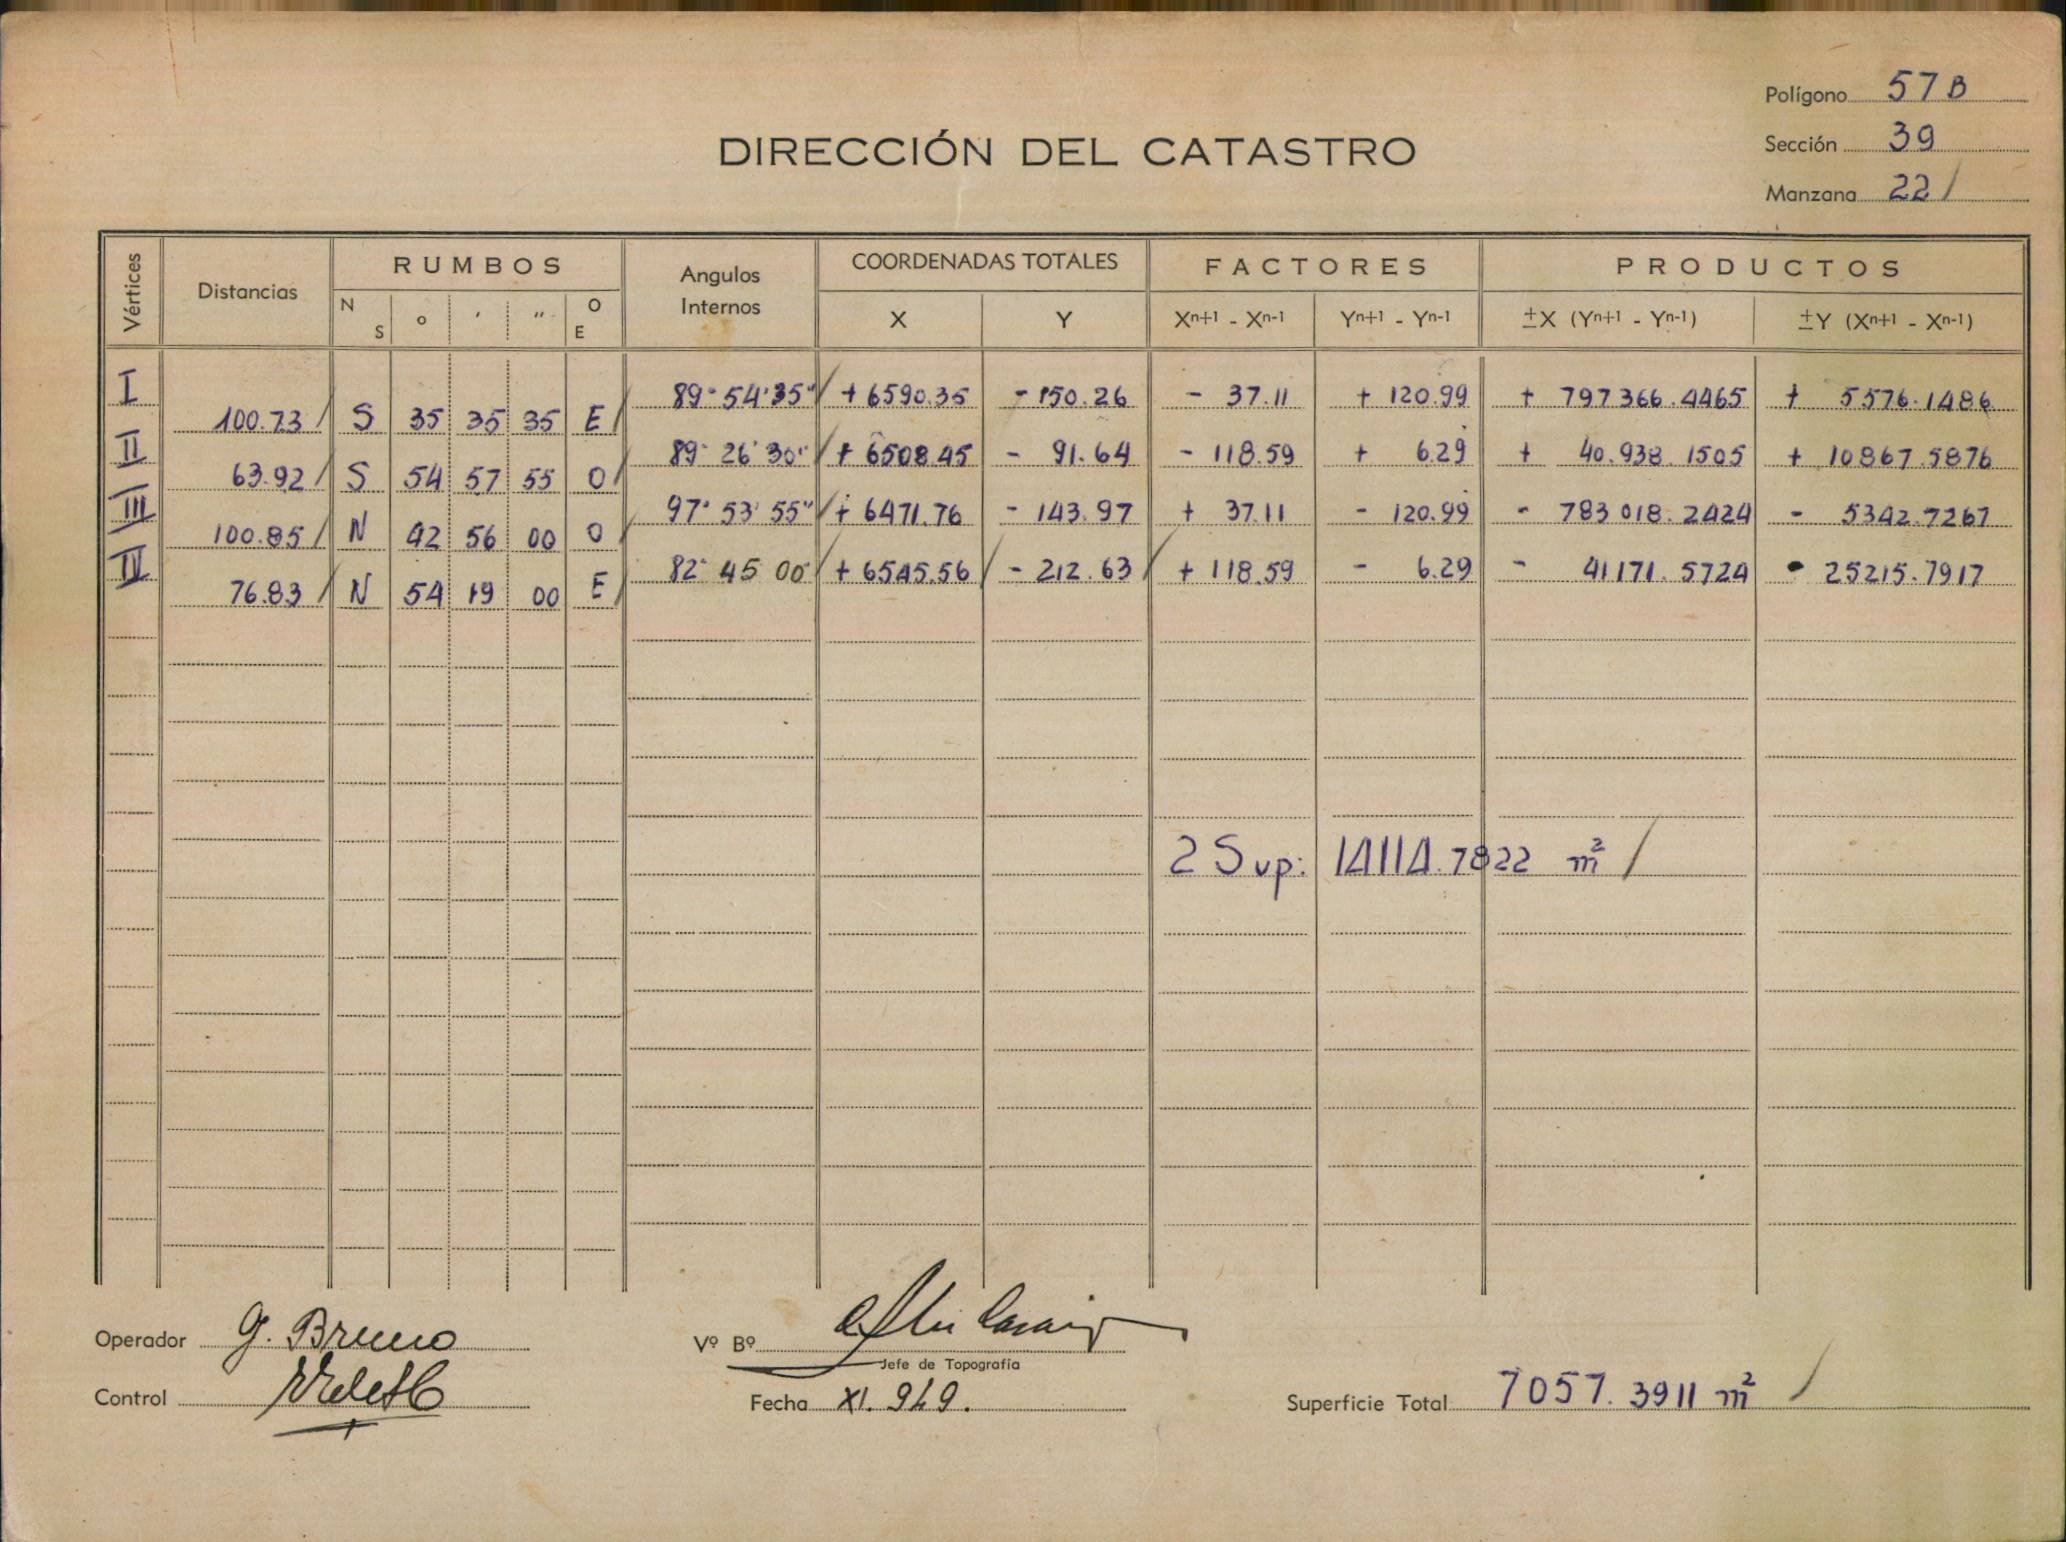 Polígono 57 B
DIRECCIÓN DEL CATASTRO
Sección 39
Manzana 22 /
Vértices Distancias RUMBOS Angulos Internos COORDENADAS TOTALES FACTORES PRODUCTOS
N S o ' " O E X Y Xn+1 - Xn-1 Yn+1 - Yn-1 ±X (Yn+1 - Yn-1) ±Y (Xn+1 - Xn-1)
I 89° 54' 35" / + 6590.35 - 150.26 - 37.11 + 120.99 + 797366.4465 + 5576.1486
100.73 / S 35 35 35 E /
II 89° 26' 30" / + 6508.45 - 91.64 - 118.59 + 6.29 + 40.938.1505 + 10867.5876
63.92 / S 54 57 55 O /
III 97° 53' 55" / + 6471.76 - 143.97 + 37.11 - 120.99 - 783018.2424 - 5342.7267
100.85 / N 42 56 00 O /
IV 82° 45 00" / + 6545.56 / - 212.63 / + 118.59 - 6.29 - 41171.5724 - 25215.7917
76.83 / N 54 19 00 E /
2 Sup: 14114.7822 m² /
Operador G. Bruno
Vº Bº
Jefe de Topografía
Control
Fecha XI. 949.
Superficie Total 7057.3911 m² /